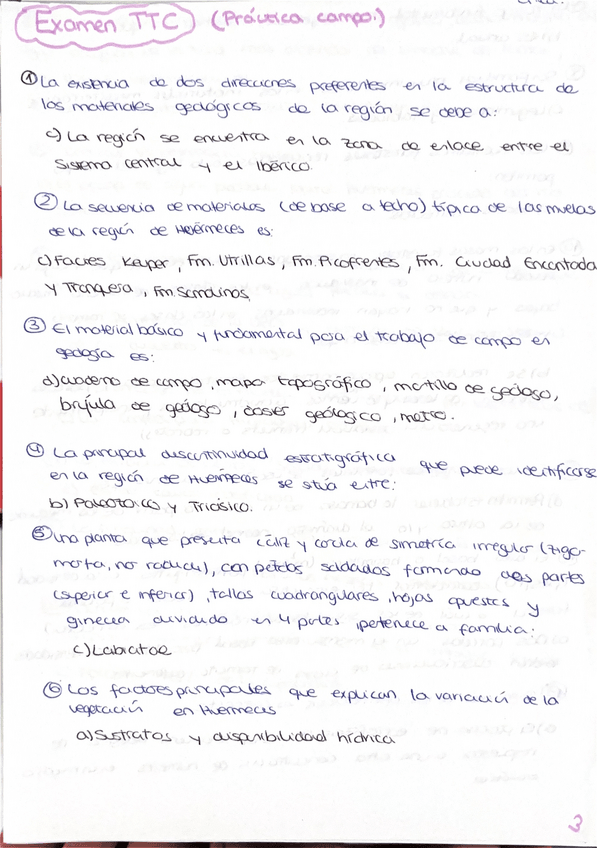 Examen TTC (Práctica campo.)
① La existencia de dos direcciones preferentes en la estructura de
los materiales geológicos de la región se debe a:
c) La región se encuentra en la zona de enlace entre el
Sistema central y el Ibérico.
② La secuencia de materiales (de base a techo) típica de las muelas
de la región de Huérmeces es:
c) Facies Keuper, Fm. Utrillas, Fm. Picofrentes, Fm. Ciudad Encantada
y Tranquera, Fm. Somolinos.
③ El material básico y fundamental para el trabajo de campo en
geología es:
d) cuaderno de campo, mapa topográfico, martillo de geólogo,
brújula de geólogo, geológico, metro.
④ La principal discontinuidad estratigráfica que puede identificarse
en la región de Huérmeces se sitúa entre:
b) Paleozoico y Triásico.
⑤ Una planta que presenta cáliz y corola de simetría irregular (zigo-
morfa, no radial), con pétalos soldados formando dos partes
(superior e inferior), tallos cuadrangulares, hojas opuestas y
gineceo dividido en 4 partes pertenece a familia:
c) Labiatae
⑥ Los factores principales que explican la variación de la
vegetación en Huérmeces
a) Sustratos y disponibilidad hídrica
3